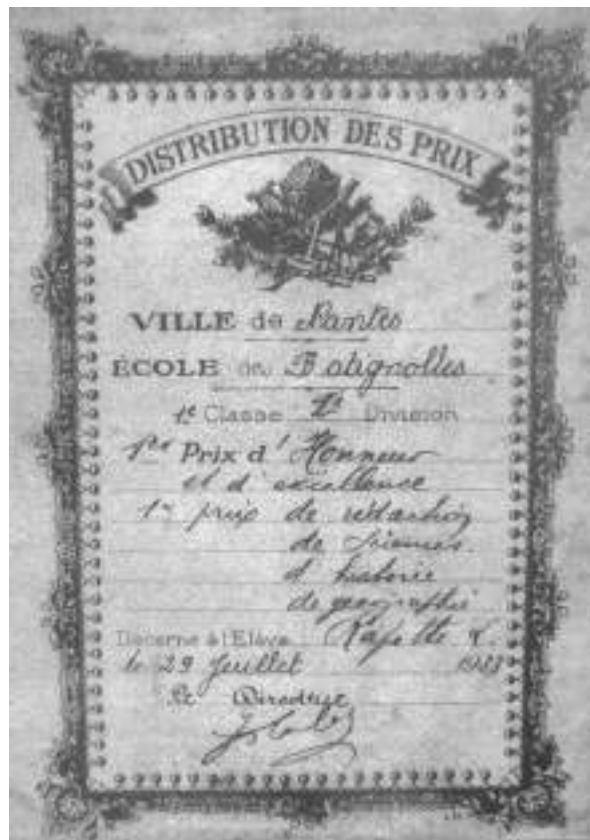 DISTRIBUTION DES PRIX
VILLE de Nantes
ÉCOLE des Batignolles
1e Classe Division
1er Prix d'Honneur
et d'excellence
1er prix de rédaction
de sciences
d'histoire
de géographie
Décerné à l'Elève
le 29 Juillet
Le Directeur